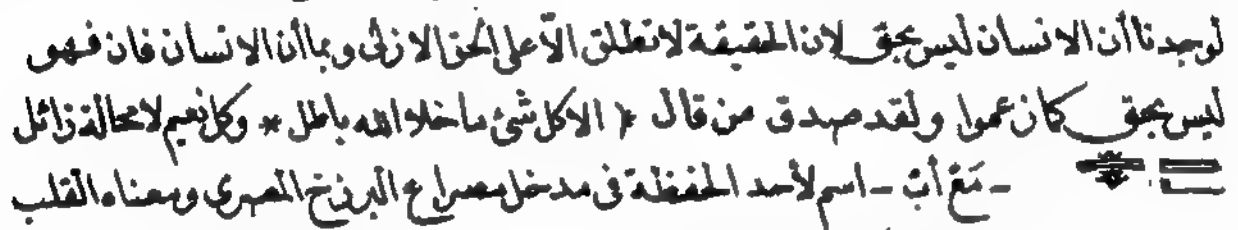 لوجدنا أن الانسان ليس بحق لان الحقيقة لا تطلق الا على الحق الازلى وبما أن الانسان فان فهو
ليس بحق كما زعموا ولقد صدق من قال * الا كل شئ ما خلا الله باطل * وكل نعيم لا محالة زائل
- مَعْ أبْ - اسم لأحد الحفظة فى مدخل مصراع البرزخ المصرى ومعناه القلب